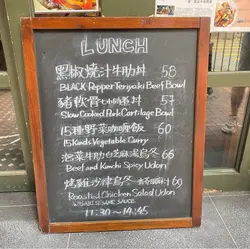 LUNCH
黑椒燒汁牛肋丼 58
BLACK Pepper Teriyaki Beef Bowl
豬軟骨 丼 57
Slow Cooked Pork Cartilage Bowl
15種野菜咖喱飯 60
15 Kinds Vegetable Curry
泡菜牛肋 烏冬 66
Beef and Kimchi Spicy Udon
燒雞沙律烏冬 69
Roasted Chicken Salad Udon
SESAME SAUCE
11:30 ～ 14:45